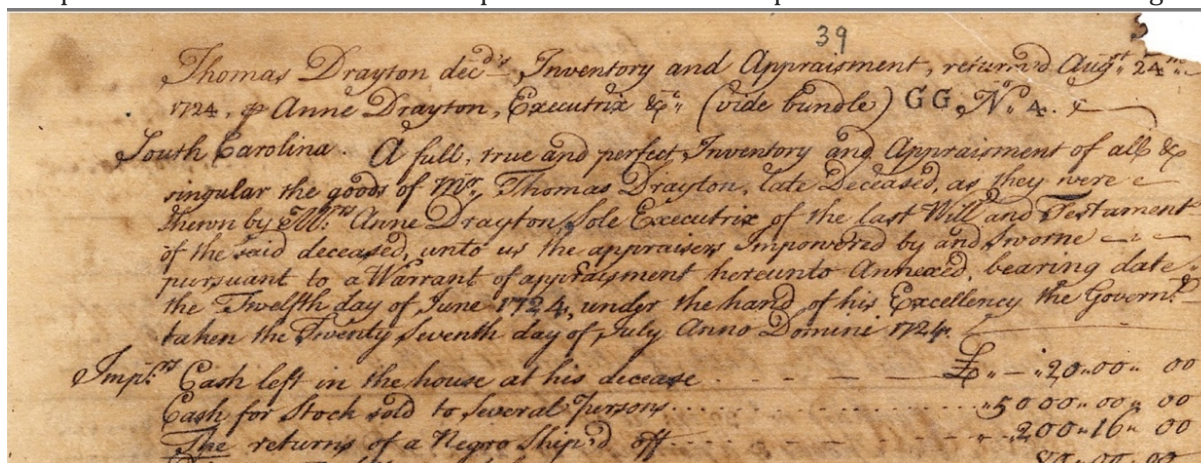 39
Thomas Drayton dec'd's Inventory and Appraisment, return'd Augst 24th
1724, ꝑ Anne Drayton, Executrix &c. (vide bundle) GG, No. 4.
South Carolina. A full, true and perfect Inventory and Appraisment of all &
singular the goods of Mr. Thomas Drayton, late Deceased, as they were
shewn by Mrs. Anne Drayton, Sole Executrix of the last Will and Testament
of the said deceased, unto us the appraisers Impowered by and Sworne
pursuant to a Warrant of appraisment hereunto Annexed, bearing date
the Twelfth day of June 1724, under the hand of his Excellency the Governr.
taken the Twenty Seventh day of July Anno Domini 1724.
Imprs. Cash left in the house at his decease £ 20 00 00
Cash for Stock sold to Several Persons 5000 00 00
The returns of a Negro Ship'd off 200 16 00